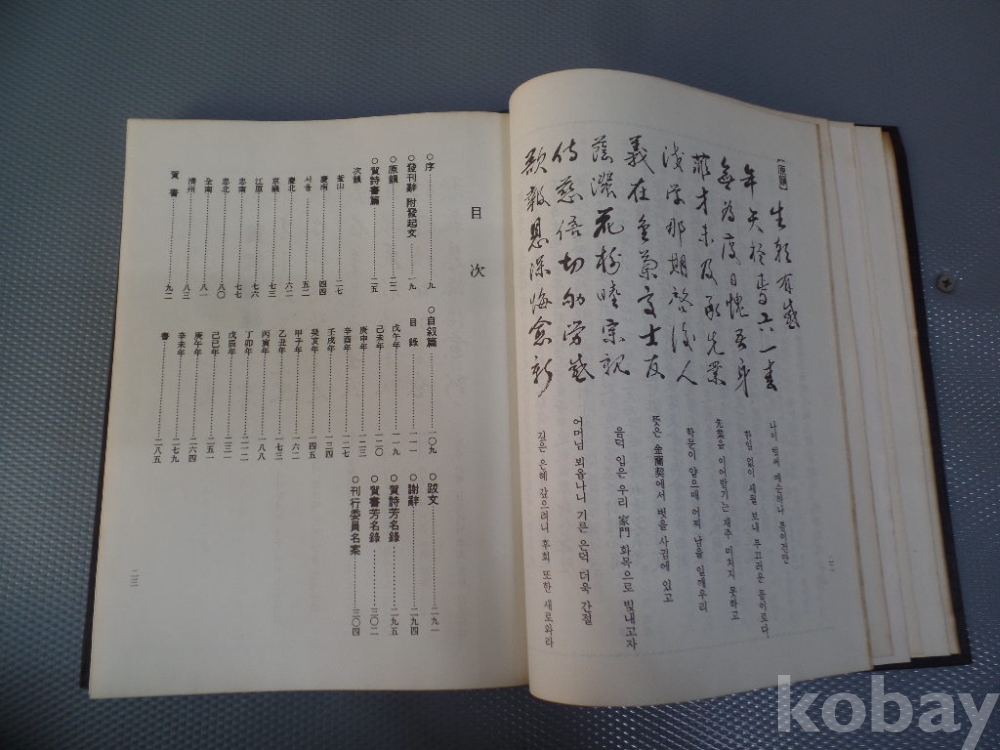 【原韻】 生朝有感
年矢於焉六一春
無爲度日愧吾身
菲才未及承先業
淺學那期啓後人
義在金蘭交士友
蔭深花樹睦宗親
侍慈倍切劬勞感
欲報恩深悔愈新
나이 벌써 예순하나 봄이건만
하임 없이 세월 보내 부끄러운 몸이로다
先業을 이어받기는 재주 미치지 못하고
학문이 얕으매 어찌 남을 일깨우리
뜻은 金蘭契에서 벗을 사귐에 있고
음덕 입은 우리 家門 화목으로 빛내고자
어머님 뫼옵나니 기른 은덕 더욱 간절
깊은 은혜 갚으려니 후회 또한 새로와라
目 次
○序 九
○發刊辭 附發起文 一九
○原韻 二二
○賀詩書篇 二五
次韻
釜山 二七
慶南 四四
서울 五二
慶北 六二
京畿 七三
江原 七六
忠南 七七
忠北 八〇
全南 八一
濟州 八三
賀書 九二
○自叙篇 一〇九
目錄 一一一
戊午年 一一九
己未年 一二〇
庚申年 一二三
辛酉年 一二七
壬戌年 一三四
癸亥年 一四五
甲子年 一六二
乙丑年 一七一
丙寅年 一八八
丁卯年 二一二
戊辰年 二三一
己巳年 二五一
庚午年 二六四
辛未年 二七九
書 二八五
○跋文 二九一
○謝辭 二九四
○賀詩芳名錄 二九五
○賀書芳名錄 三〇二
○刊行委員名案 三〇四
二三
kobay